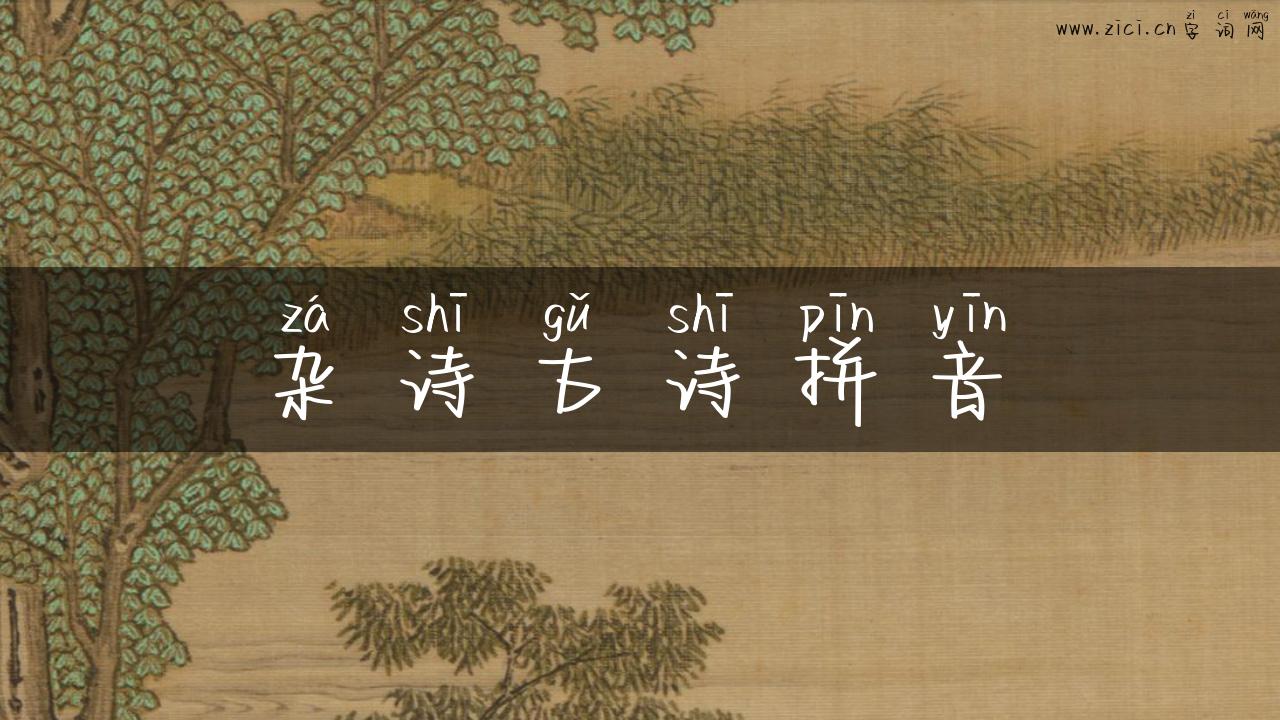 zì cí wǎng
www.zici.cn字词网
zá shī gǔ shī pīn yīn
杂诗古诗拼音